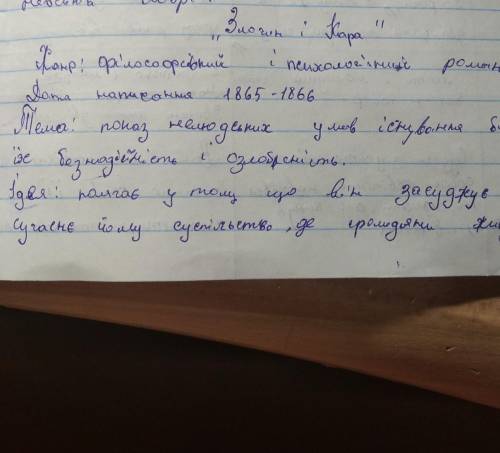 „Злочин і Кара"
Жанр: філософський і психологічний роман
Дата написання 1865-1866
Тема: показ нелюдських умов існування б
їх безнадійність і озлобленість.
Ідея: полягає у тому що він засуджує
сучасне йому суспільство, де громадяни жи